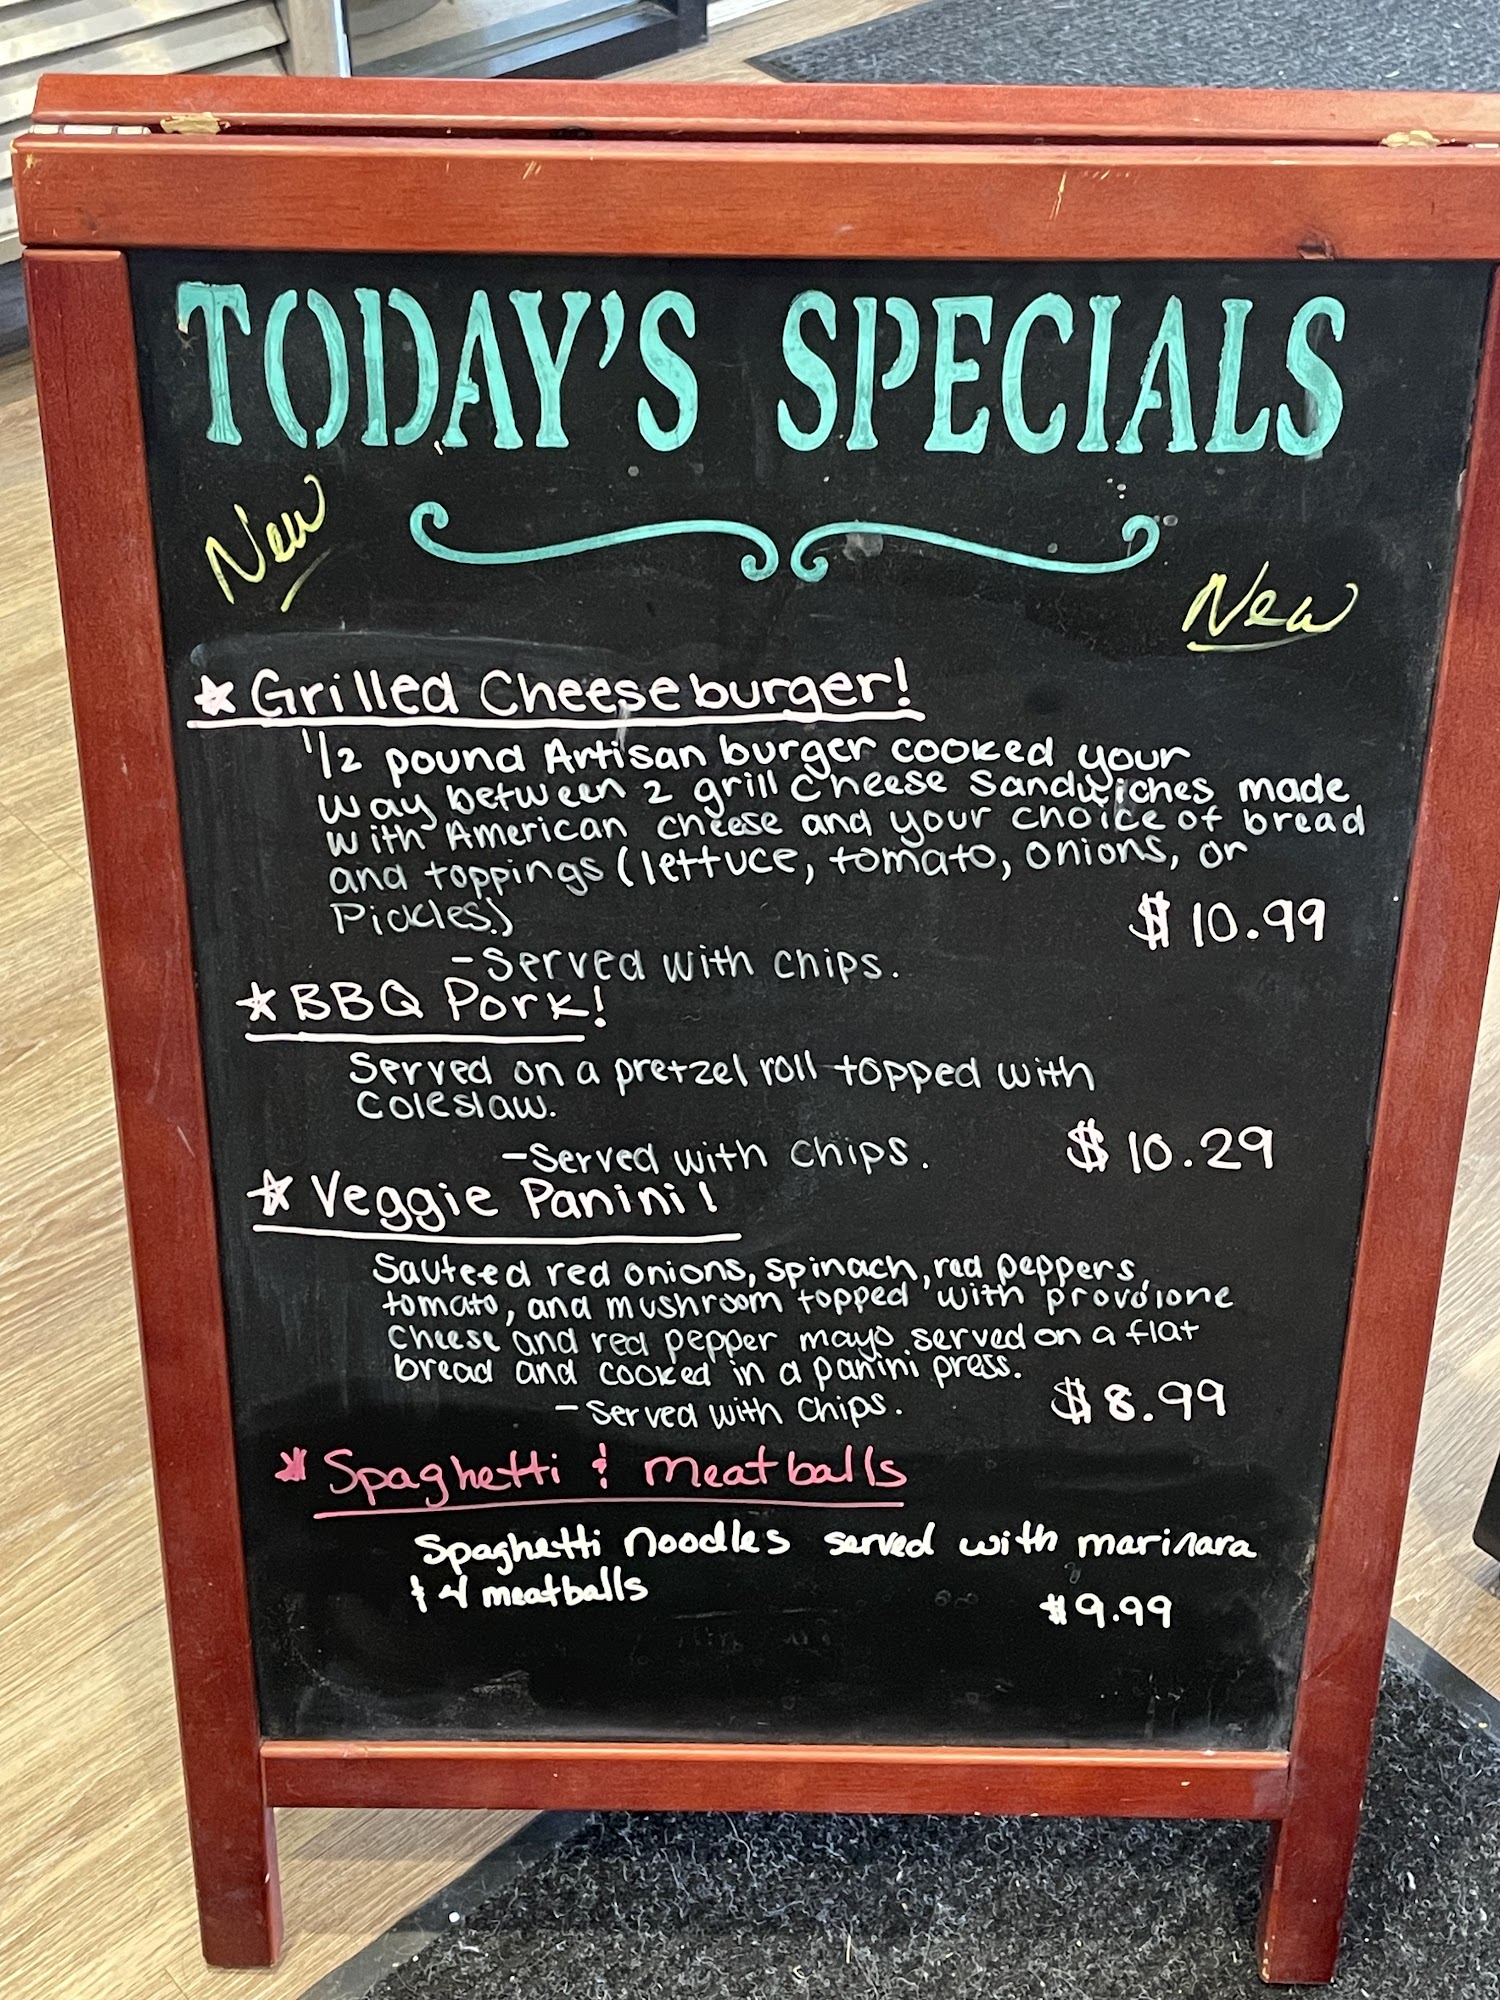 TODAY'S SPECIALS
New
New
☆ Grilled Cheeseburger!
1/2 pound Artisan burger cooked your
way between 2 grill cheese sandwiches made
with American cheese and your choice of bread
and toppings (lettuce, tomato, onions, or
Pickles.)
$10.99
- Served with chips.
☆ BBQ Pork!
Served on a pretzel roll topped with
coleslaw.
- Served with chips.
$10.29
☆ Veggie Panini!
Sauteed red onions, spinach, red peppers,
tomato, and mushroom topped with provolone
cheese and red pepper mayo served on a flat
bread and cooked in a panini press.
$8.99
- Served with chips.
* Spaghetti & meatballs
Spaghetti noodles served with marinara
& 4 meatballs
$9.99